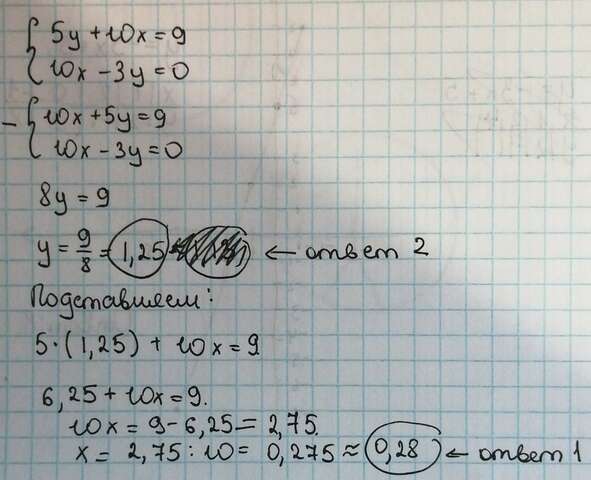 5y + 10x = 9
10x - 3y = 0
- 10x + 5y = 9
10x - 3y = 0
8y = 9
y = 9/8 = 1,25 ← ответ 2
Подставляем:
5·(1,25) + 10x = 9
6,25 + 10x = 9.
10x = 9 - 6,25 = 2,75.
x = 2,75 : 10 = 0,275 ≈ 0,28 ← ответ 1